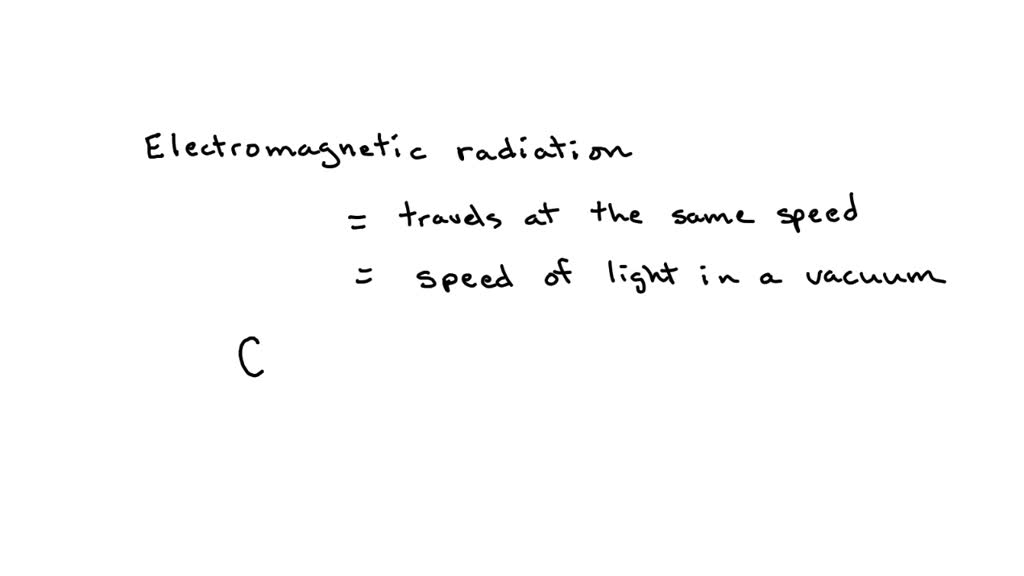 Electromagnetic radiation
= travels at the same speed
= speed of light in a vacuum
C